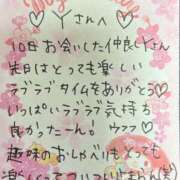 Yさんへ♡
10日お会いした仲良しYさん
先日はとっても楽しい
ラブラブタイムをありがとう♡
いっぱいラブラブ気持ち
良かったーん! ウフフ♡
趣味のおしゃべりもとっても
楽しい